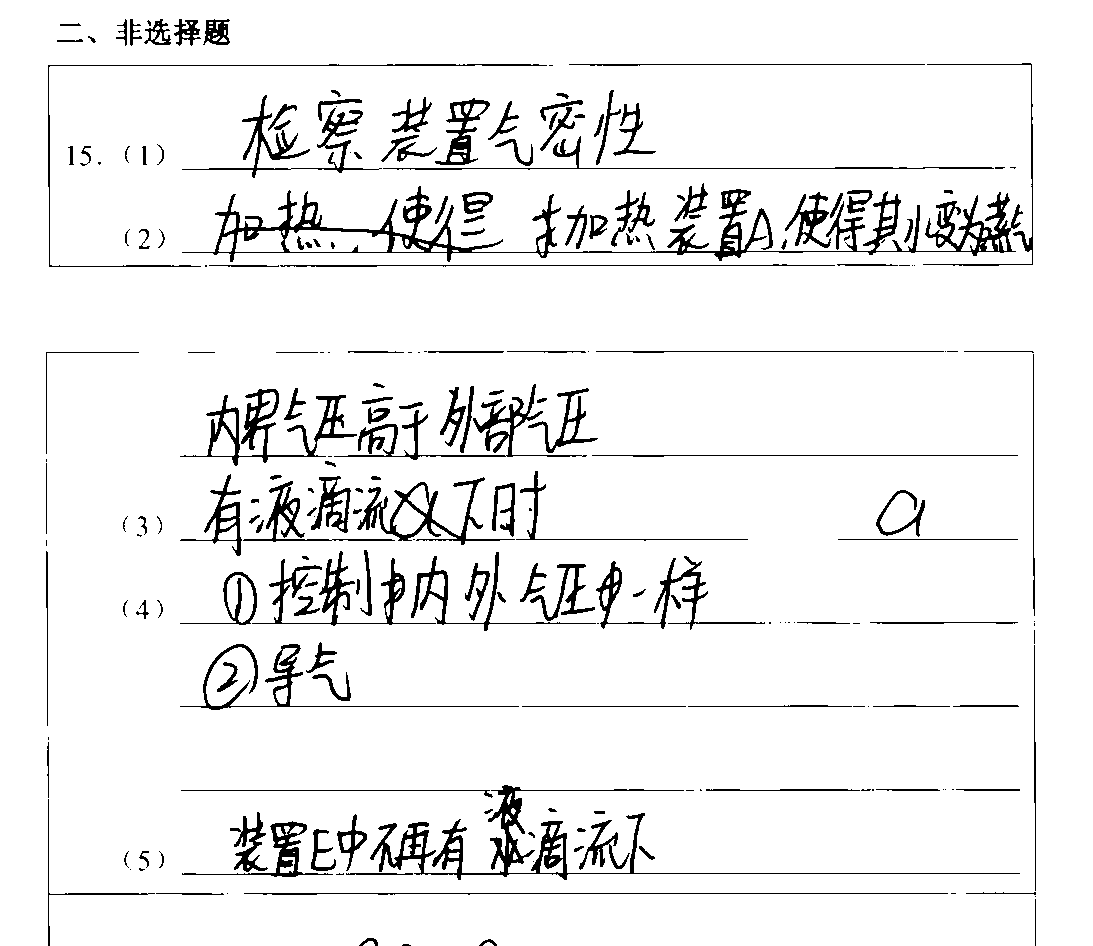 二、非选择题
15.（1） 检察装置气密性
（2） 加热装置A,使得其水变为蒸气
内界气压高于外部气压
（3） 有液滴流下时 a
（4） ①控制内外气压一样
②导气
（5） 装置E中不再有液滴流下